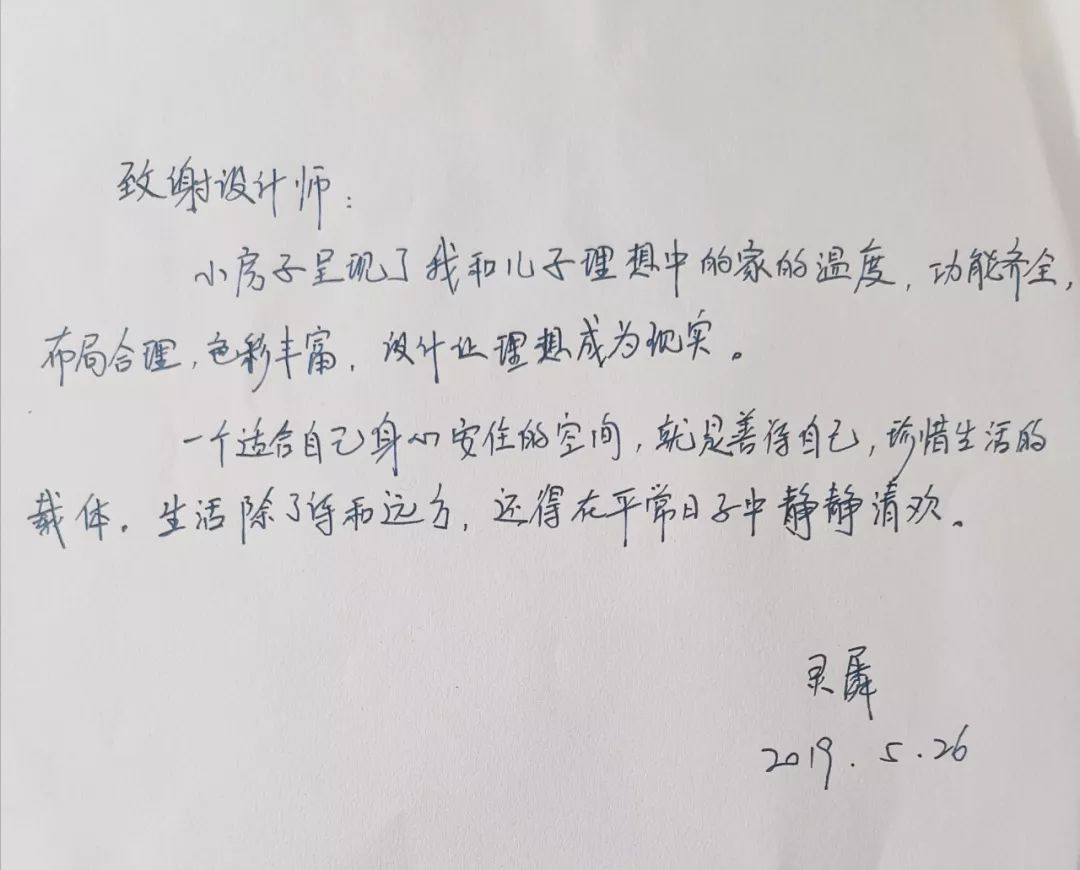 致谢设计师：
小房子呈现了我和儿子理想中的家的温度，功能齐全，
布局合理，色彩丰富，设计让理想成为现实。
一个适合自己身心安住的空间，就是善待自己，珍惜生活的
载体。生活除了诗和远方，还得在平常日子中静静清欢。
灵犀
2019.5.26